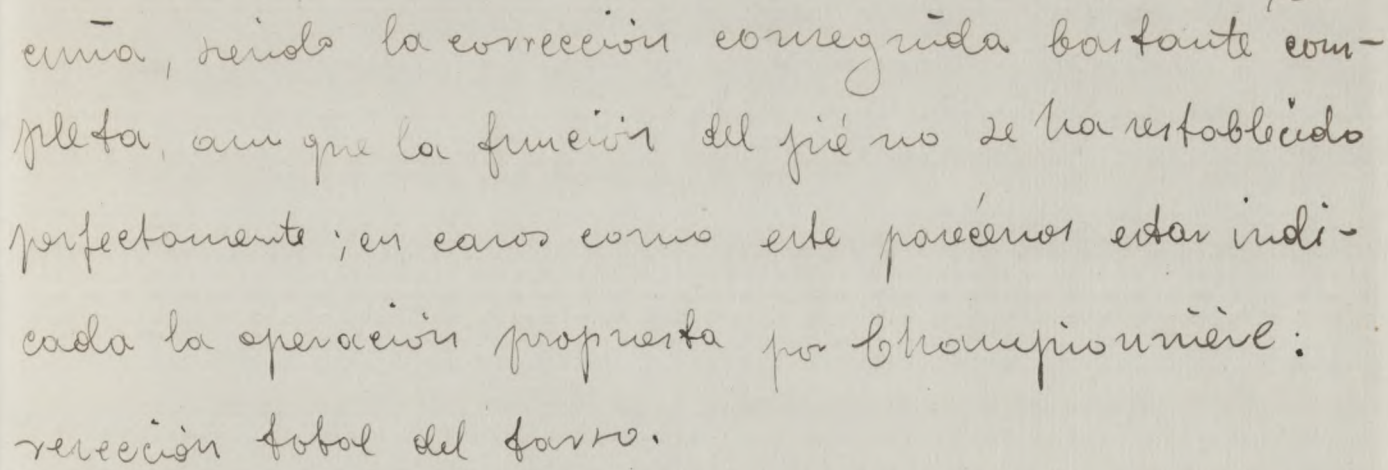 cuña, siendo la corrección conseguida bastante com-
pleta, aun que la función del pié no se ha restablecido
perfectamente; en casos como este parécenos estar indi-
cada la operación propuesta por Championnière:
resección total del tarso.